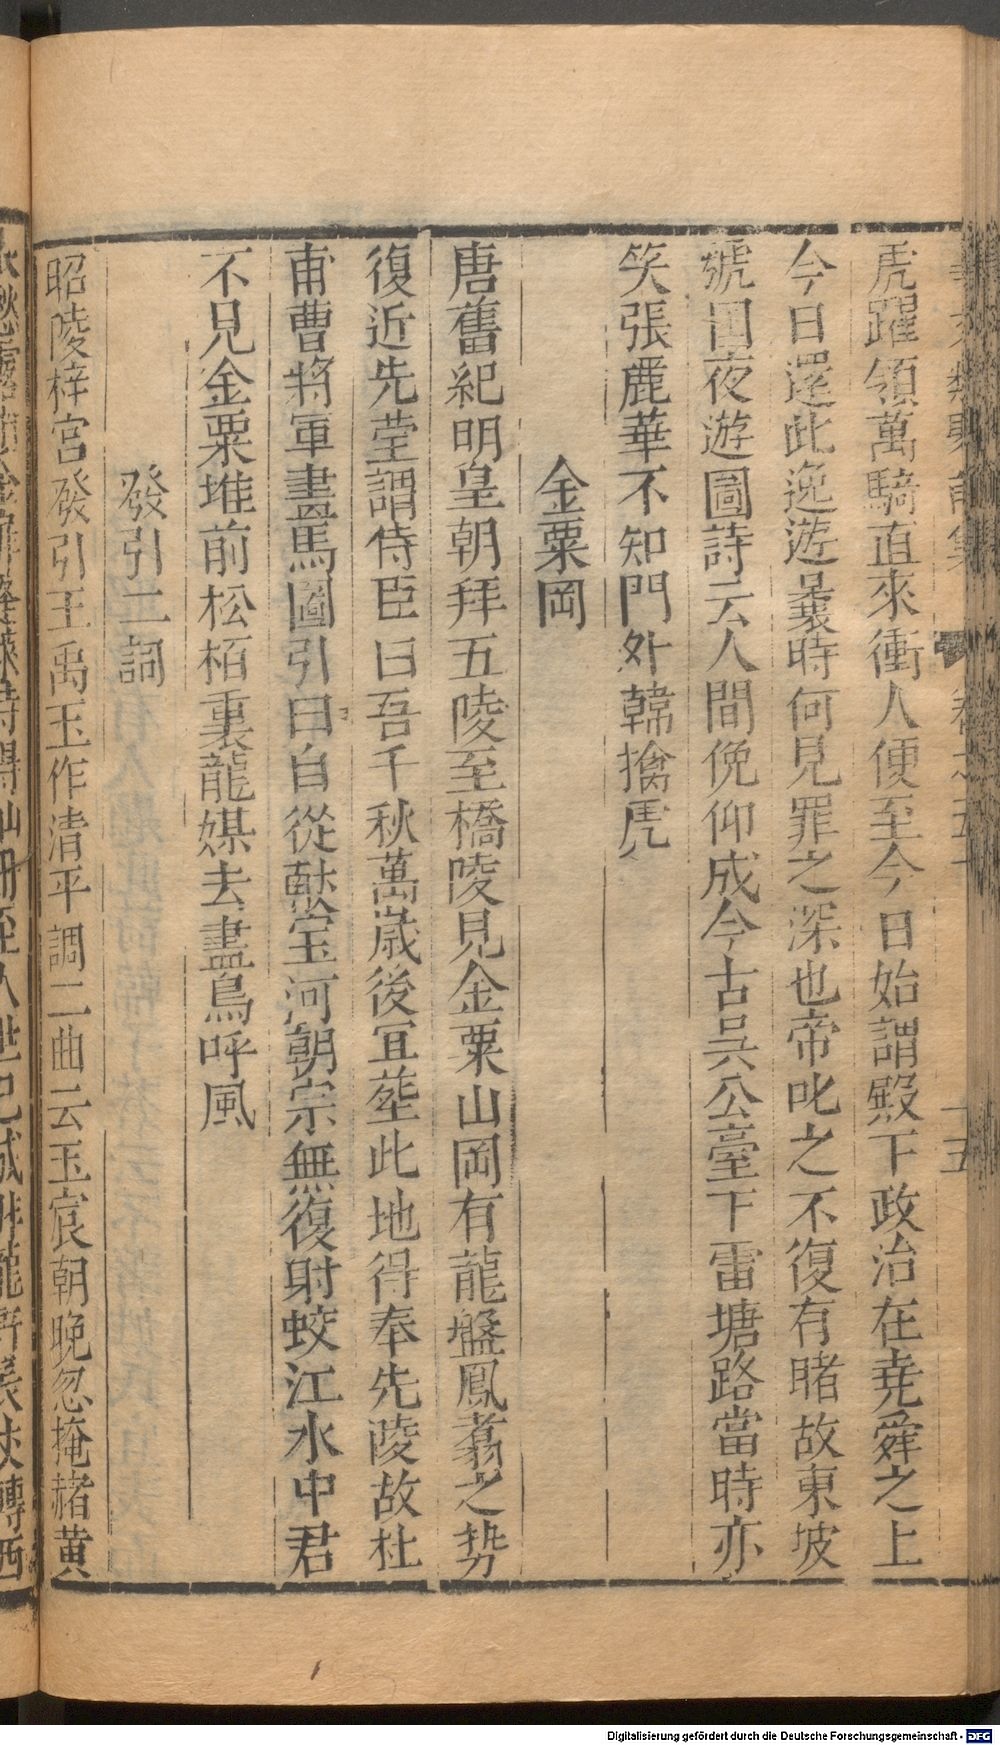 虎躍領萬騎直來衝人便至今日始謂殿下政治在堯舜之上
今日還此逸遊曩時何見罪之深也帝叱之不復有睹故東坡
號國夜遊圖詩云人間俛仰成今古吳公臺下雷塘路當時亦
笑張麗華不知門外韓擒虎
金粟岡
唐舊紀明皇朝拜五陵至橋陵見金粟山岡有龍盤鳳翥之勢
復近先塋謂侍臣曰吾千秋萬歲後宜塟此地得奉先陵故杜
甫曹將軍畫馬圖引曰自從獻寶河朝宗無復射蛟江水中君
不見金粟堆前松栢裏龍媒去盡鳥呼風
發引二詞
昭陵梓宮發引王禹玉作清平調二曲云玉宸朝晚忽掩赭黃
Digitalisierung gefördert durch die Deutsche Forschungsgemeinschaft - DFG